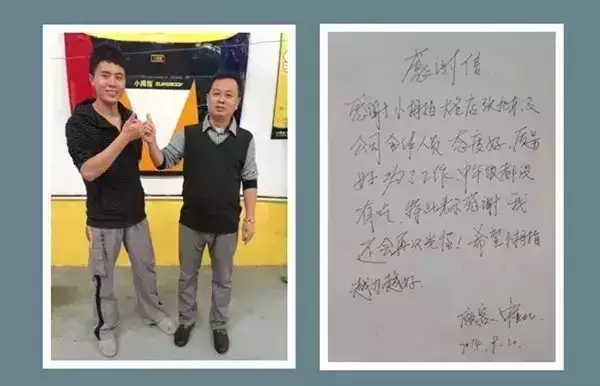 小拇指
感谢信
感谢小拇指大店张及
公司全体人员 态度好、质量
好 为了工作、中午饭都没
有吃 特此表示感谢 我
还会再次光临！希望小拇指
越办越好.
顾客：
2014.9.30.